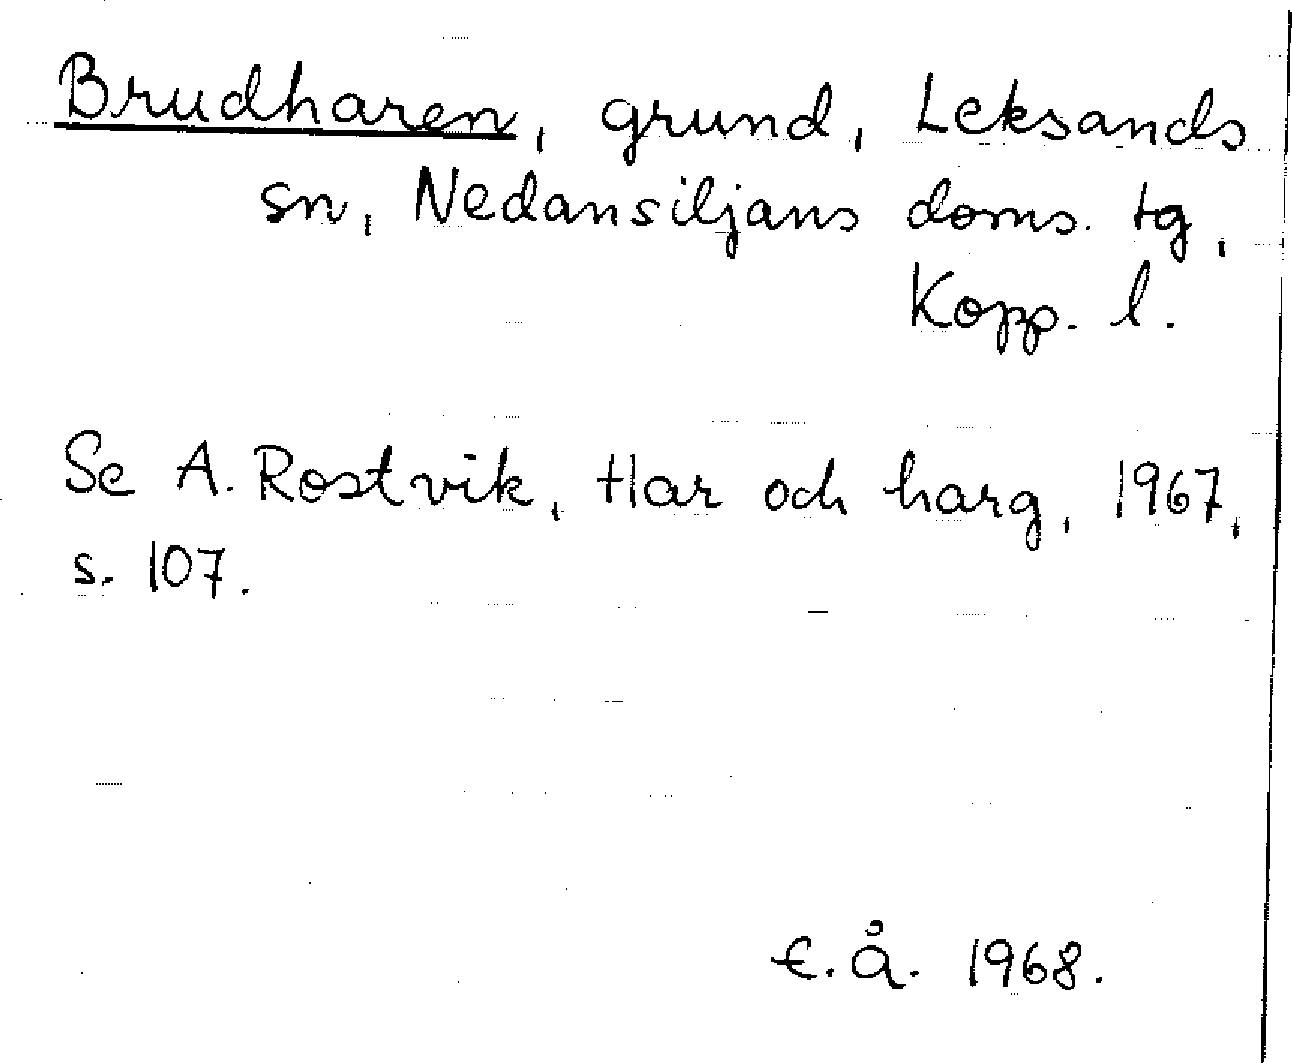 Brudharen, grund, Leksands
sn, Nedansiljans doms. tg,
Kopp. l.
Se A. Rostvik, Har och harg, 1967,
s. 107.
E.Å. 1968.